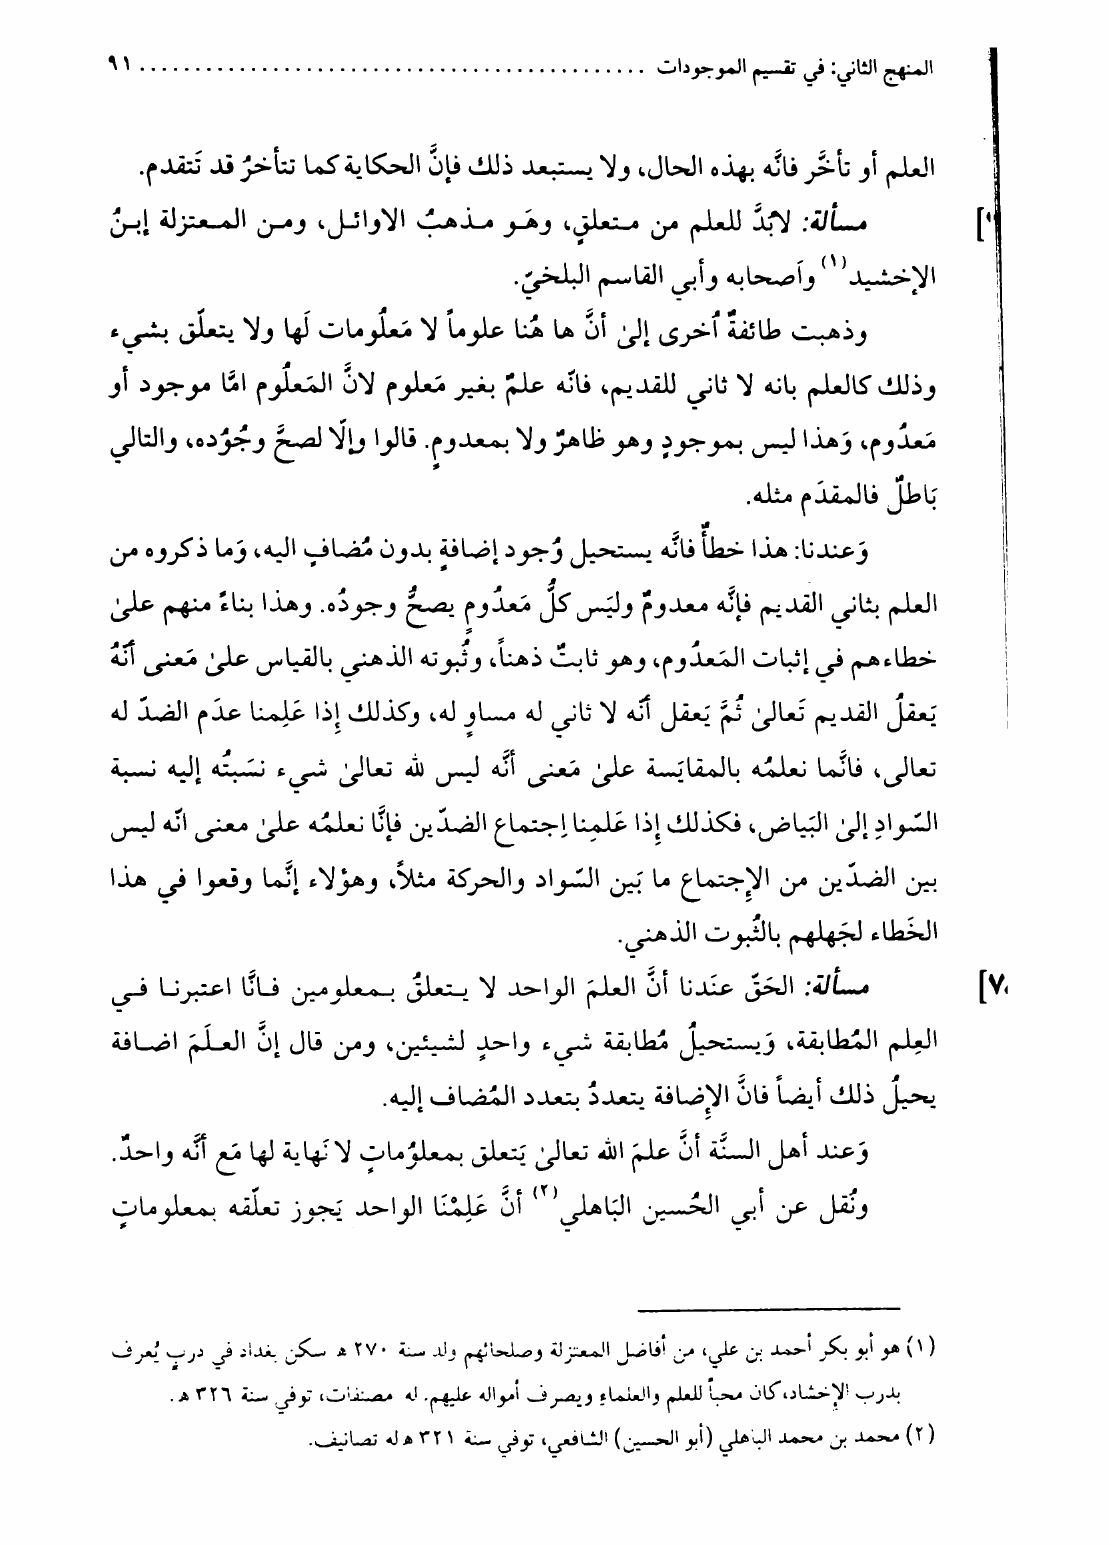 المنهج الثاني: في تقسيم الموجودات ............................................... ٩١
العلم أو تأخَّر فانَّه بهذه الحال، ولا يستبعد ذلك فإنَّ الحكاية كما تتأخرُ قد تَتقدم.
مسألة: لابُدَّ للعلم من متعلقٍ، وهَو مذهبُ الاوائل، ومن المعتزلة إبنُ
الإخشيد(١) واَصحابه وأبي القاسم البلخيّ.
وذهبت طائفةٌ اُخرى إلىٰ أنَّ ها هُنا علوماً لا مَعلُومات لَها ولا يتعلّق بشيء
وذلك كالعلم بانه لا ثاني للقديم، فانّه علمٌ بغير مَعلوم لانَّ المَعلُوم امَّا موجود أو
مَعدُوم، وَهذا ليس بموجودٍ وهو ظاهرٌ ولا بمعدومٍ. قالوا وإلّا لصحَّ وجُوُده، والتالي
بَاطلٌ فالمقدَم مثله.
وَعندنا: هذا خطأٌ فانَّه يستحيل وُجود إضافةٍ بدون مُضافٍ اليه، وَما ذكروه من
العلم بثاني القديم فإنَّه معدومٌ وليَس كلُّ مَعدُومٍ يصحُّ وجودُه. وهذا بناءً منهم علىٰ
خطاءهم في إثبات المَعدُوم، وهو ثابتٌ ذهناً، وثُبوته الذهني بالقياس علىٰ مَعنى أنَّهُ
يَعقلُ القديم تَعالىٰ ثُمَّ يَعقل أنّه لا ثاني له مساوٍ له، وكذلك إِذا عَلِمنا عدَم الضدّ له
تعالى، فانَّما نعلمُه بالمقايَسة علىٰ مَعنى أنَّه ليس لله تعالىٰ شيء نسَبتُه إليه نسبة
السّوادِ إلىٰ البَياض، فكذلك إِذا عَلمِنا اِجتماع الضدّين فإنَّا نعلمُه علىٰ معنى انّه ليس
بين الضدّين من الإِجتماع ما بَين السّواد والحركة مثلاً، وهؤلاء إنَّما وقعوا في هذا
الخَطاء لجَهلهم بالثُبوت الذهني.
[٧
مسألة: الحَقّ عنَدنا أنَّ العلمَ الواحد لا يتعلقُ بمعلومين فانَّا اعتبرنا في
العِلم المُطابقة، وَيستحيلُ مُطابقة شيء واحدٍ لشيئين، ومن قال إنَّ العلَمَ اضافة
يحيلُ ذلك أيضاً فانَّ الإِضافة يتعددُ بتعدد المُضاف إليه.
وَعند أهل السنَّة أنَّ علمَ الله تعالىٰ يَتعلق بمعلوُماتٍ لا نَهاية لها مَع أنَّه واحدٌ.
ونُقل عن أبي الحُسين البَاهلي(٢) أنَّ عَلِمْنَا الواحد يَجوز تعلّقه بمعلوماتٍ
(١) هو أبو بكر أحمد بن علي، من أفاضل المعتزلة وصلحائهم ولد سنة ٢٧٠ ه سكن بغداد في دربٍ يُعرف
بدرب الإخشاد، كان محباً للعلم والعلماء ويصرف أمواله عليهم. له مصنفات، توفي سنة ٣٢٦ ه.
(٢) محمد بن محمد الباهلي (أبو الحسين) الشافعي، توفي سنة ٣٢١ ه له تصانيف.